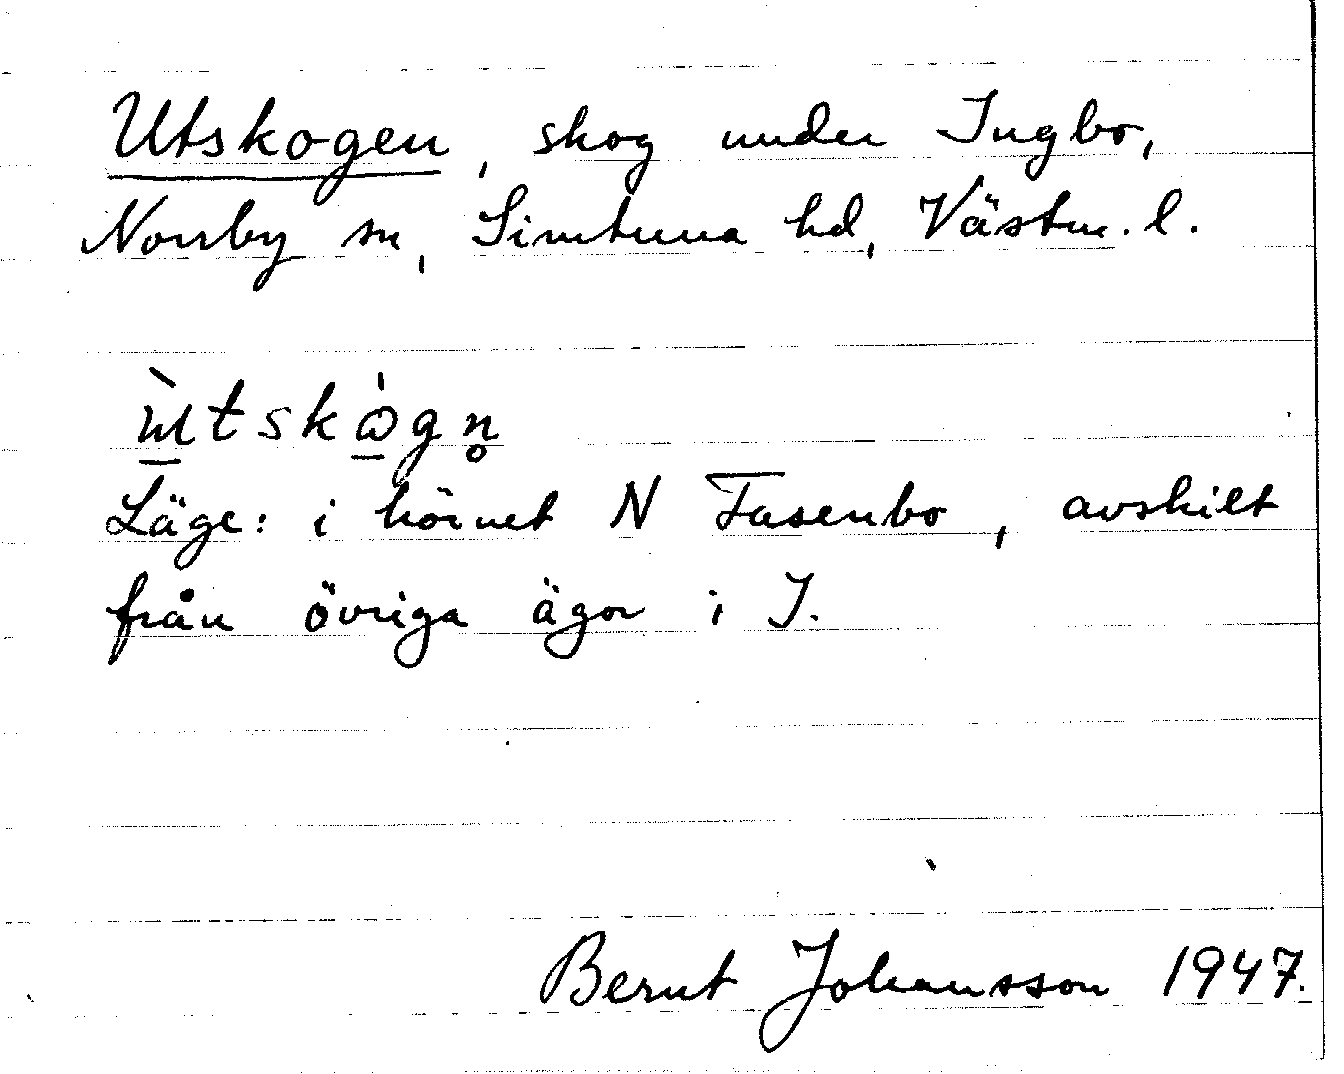 Utskogen, skog under Ingbo,
Norrby sn, Simtuna hd, Västm. l.
ɯ̱̀tskὼ̱gn̥
Läge: i hörnet N Fasenbo, avskilt
från övriga ägor i I.
Bernt Johansson 1947.